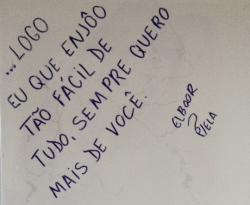 ...LOGO
EU QUE ENJÔO
TÃO FÁCIL DE
TUDO, SEMPRE QUERO
MAIS DE VOCÊ.